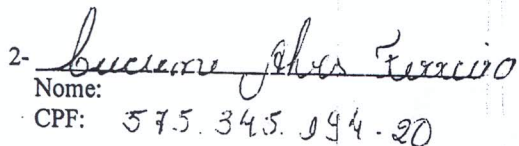 2- Luciene Alves Ferreira
Nome:
CPF: 575.345.194-20